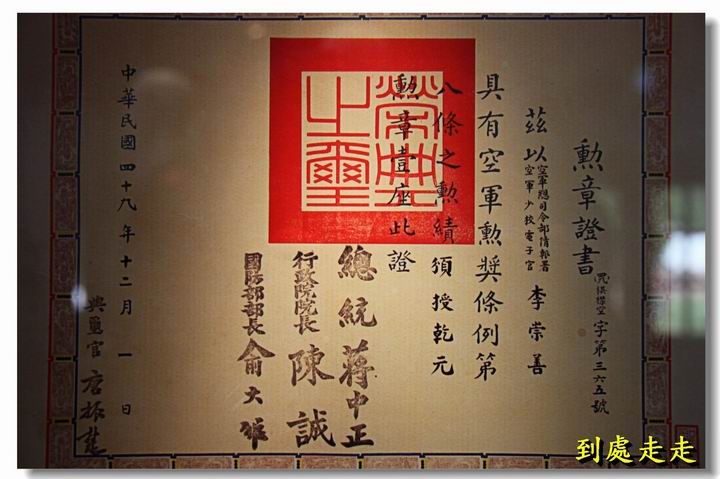 勳章證書
字第三六五號
茲以空軍總司令部情報署
空軍少校電子官
李崇善
具有空軍勳獎條例第
八條之勳績頒授乾元
勳章壹座此證
總統 蔣中正
行政院院長 陳誠
國防部部長 俞大維
中華民國四十九年十二月一日
典璽官
榮典之璽
到處走走